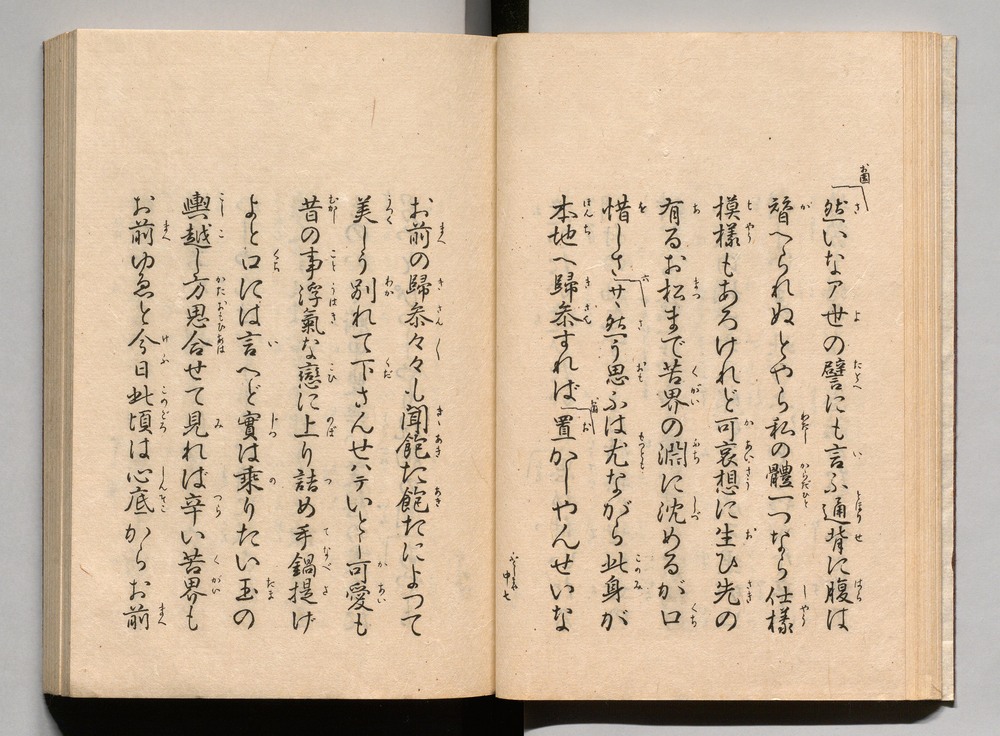 お園
然いなア世の譬にも言ふ通背に腹は
替へられぬとやら私の體一つなら仕樣
模樣もあろけれど可哀想に生ひ先の
有るお松まで苦界の淵に沈めるが口
惜しさサ然う思ふは尤ながら此身が
本地へ歸参すれば置かしやんせいな
中七
お前の歸参々々も聞飽た飽たによつて
美しう別れて下さんせハテいとし可愛も
昔の事浮氣な戀に上り詰め手鍋提げ
よと口には言へど實は乘りたい玉の
輿越し方思合せて見れば辛い苦界も
お前ゆゑと今日此頃は心底からお前